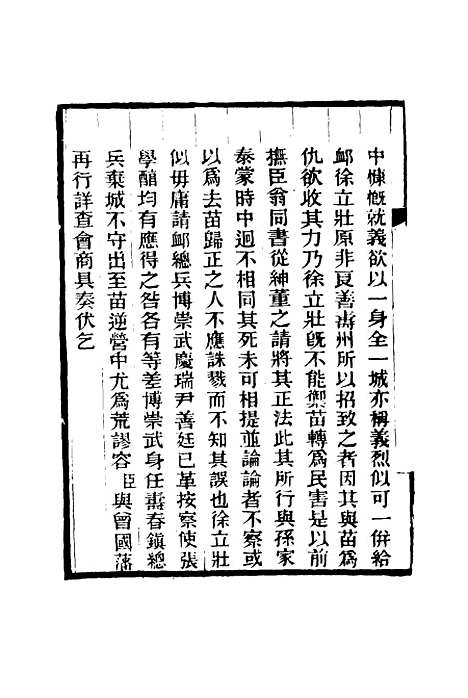 中慷慨就義欲以一身全一城亦稱義烈似可一併給
卹徐立壯原非良善壽州所以招致之者因其與苗爲
仇欲收其力乃徐立壯旣不能禦苗轉爲民害是以前
撫臣翁同書從紳董之請將其正法此其所行與孫家
泰蒙時中迥不相同其死未可相提並論論者不察或
以爲去苗歸正之人不應誅戮而不知其誤也徐立壯
似毋庸請卹總兵博崇武慶瑞尹善廷已革按察使張
學醕均有應得之咎各有等差博崇武身任壽春鎭總
兵棄城不守出至苗逆營中尤爲荒謬容臣與曾國藩
再行詳查會商具奏伏乞